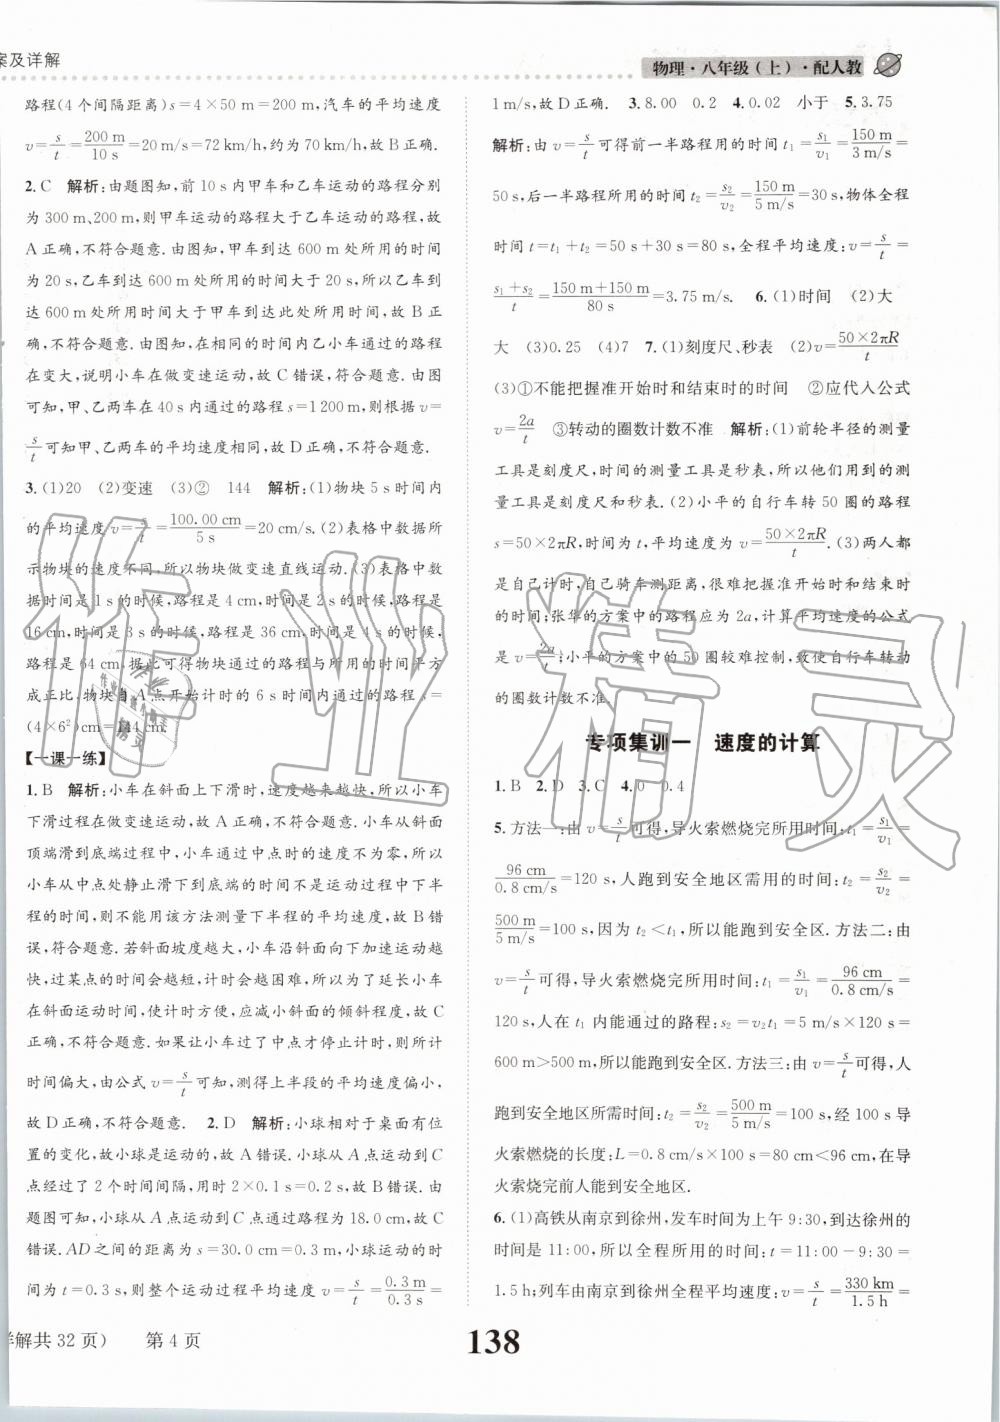 案及详解
物理·八年级（上）·配人教
路程(4 个间隔距离)s=4×50 m=200 m,汽车的平均速度
v=s/t=200 m/10 s=20 m/s=72 km/h,约为 70 km/h,故 B 正确.
2. C 解析:由题图知,前 10 s 内甲车和乙车运动的路程分别
为 300 m、200 m,则甲车运动的路程大于乙车运动的路程,故
A 正确,不符合题意. 由图知,甲车到达 600 m 处所用的时间
为 20 s,乙车到达 600 m 处所用的时间大于 20 s,所以乙车到
达 600 m 处所用时间大于甲车到达此处所用时间,故 B 正
确,不符合题意. 由图知,在相同的时间内乙小车通过的路程
在变大,说明小车在做变速运动,故 C 错误,符合题意. 由图
可知,甲、乙两车在 40 s 内通过的路程 s=1 200 m,则根据 v=
s/t可知甲、乙两车的平均速度相同,故 D 正确,不符合题意.
3. (1)20 (2)变速 (3)② 144 解析:(1)物块 5 s 时间内
的平均速度 v=s/t=100.00 cm/5 s=20 cm/s. (2)表格中数据所
示物块的速度不同,所以物块做变速直线运动. (3)表格中数
据时间是 1 s 的时候,路程是 4 cm,时间是 2 s 的时候,路程是
16 cm,时间是 3 s 的时候,路程是 36 cm,时间是 4 s 的时候,
路程是 64 cm,据此可得物块通过的路程与所用的时间平方
成正比,物块自 A 点开始计时的 6 s 时间内通过的路程 s=
(4×6²)cm=144 cm.
【一课一练】
1. B 解析:小车在斜面上下滑时,速度越来越快,所以小车
下滑过程在做变速运动,故 A 正确,不符合题意. 小车从斜面
顶端滑到底端的过程中,小车通过中点时的速度不为零,所以
小车从中点处静止滑下到底端的时间不是运动过程中下半程
的时间,则不能用该方法测量下半程的平均速度,故 B 错
误,符合题意. 若斜面坡度越大,小车沿斜面向下加速运动越
快,过某点的时间会越短,计时会越困难,所以为了延长小车
运动的时间,使计时方便,应减小斜面的倾斜程度,故 C
正确,不符合题意. 如果让小车过了中点才停止计时,则所计
时间偏大,由公式 v=s/t可知,测得上半段的平均速度偏小,
故 D 正确,不符合题意. 2. D 解析:小球相对于桌面有位
置的变化,故小球是运动的,故 A 错误. 小球从 A 点运动到 C
点经过了 2 个时间间隔,用时 2×0.1 s=0.2 s,故 B 错误. 由
题图可知,小球从 A 点运动到 C 点通过路程为 18.0 cm,故 C
错误. AD 之间的距离为 s=30.0 cm=0.3 m,小球运动的时
间为 t=0.3 s,则整个运动过程平均速度为 v=s/t=0.3 m/0.3 s=
1 m/s,故 D 正确. 3. 8.00 0.2 4. 0.02 小于 5. 3.75
解析:由 v=s/t可得前一半路程用的时间 t₁=s₁/v₁=150 m/3 m/s=
50 s,后一半路程所用的时间 t₂=s₂/v₂=150 m/5 m/s=30 s,物体全程
时间 t=t₁+t₂=50 s+30 s=80 s,全程平均速度:v=s/t=
s₁+s₂/t=150 m+150 m/80 s=3.75 m/s. 6. (1)时间 (2)大
大 (3)0.25 (4)7 7. (1)刻度尺、秒表 (2)v=50×2πR/t
(3)①不能把握准开始时和结束时的时间 ②应代入公式
v=2a/t ③转动的圈数计数不准 解析:(1)前轮半径的测量
工具是刻度尺,时间的测量工具是秒表,所以需要用到的测
量工具是刻度尺和秒表. (2)小平的自行车转 50 圈的路程
s=50×2πR,时间为 t,平均速度为 v=50×2πR/t. (3)两人都
是自己计时,自己骑车测距离,很难把握准开始计时和结束时
的时间;张华的方案中的路程应为 2a,计算平均速度的公式
是 v=2a/t;小平的方案中的 50 圈较难控制,致使自行车转动
的圈数计数不准.
专项集训一 速度的计算
1. B 2. D 3. C 4. 0 0.4
5. 方法一:由 v=s/t可得,导火索燃烧完所用时间:t₁=s₁/v₁=
96 cm/0.8 cm/s=120 s,人跑到安全地区需用的时间:t₂=s₂/v₂=
500 m/5 m/s=100 s,因为 t₂<t₁,所以能跑到安全区. 方法二:由
v=s/t可得,导火索燃烧完所用时间:t₁=s₁/v₁=96 cm/0.8 cm/s=
120 s,人在 t₁ 内能通过的路程:s=v₂t₁=5 m/s×120 s=
600 m>500 m,所以能跑到安全区. 方法三:由 v=s/t可得,人
跑到安全地区所需时间:t₂=s₂/v₂=500 m/5 m/s=100 s,经 100 s 导
火索燃烧的长度:L=0.8 cm/s×100 s=80 cm<96 cm,在导
火索燃烧完前人能到安全地区.
6. (1)高铁从南京到徐州,发车时间为上午 9:30,到达徐州的
时间是 11:00,所以全程所用的时间:t=11:00-9:30=
1.5 h;列车由南京到徐州全程平均速度:v=s/t=330 km/1.5 h=
详解共 32 页） 第 4 页
138
作业精灵